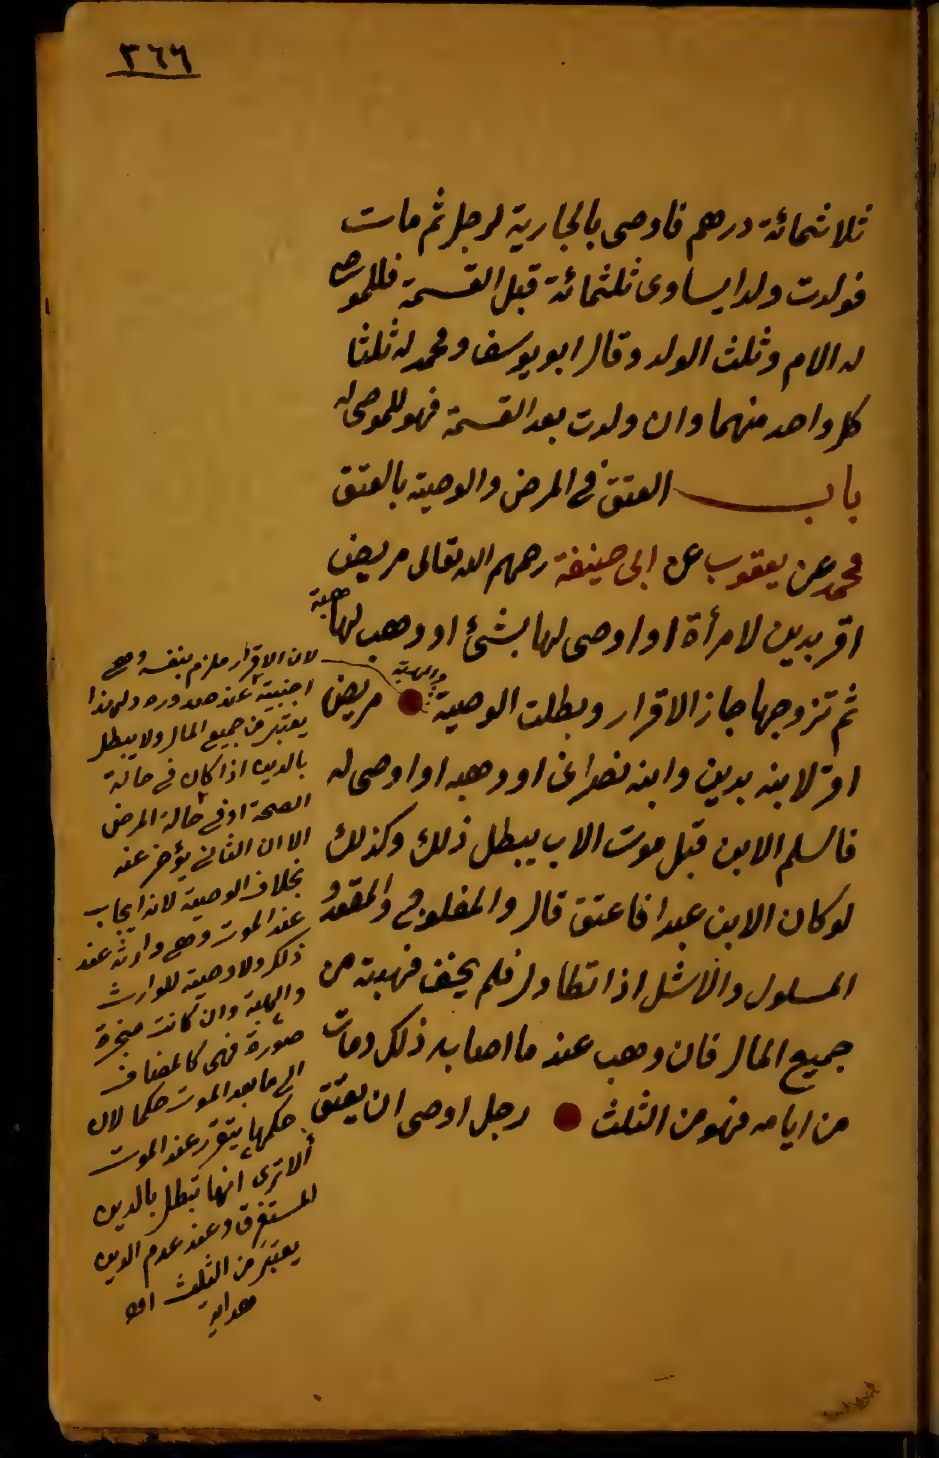 ٣٦٦
ثلاثمائة درهم فاوصى بالجارية لرجل ثم مات
فولدت ولدا يساوى ثلثمائة قبل القسمة فللموصى
له الام وثلث الولد وقال ابو يوسف ومحمد له ثلثا
كل واحد منهما وان ولدت بعد القسمة فهو للموصى له
باب العتق فى المرض والوصية بالعتق
محمد عن يعقوب عن ابى حنيفة رحمهم الله تعالى مريض
اقر بدين لامرأة او اوصى لها بشئ او وهب لها هبة
ثم تزوجها جاز الاقرار وبطلت الوصية والهبة مريض
اقر لابنه بدين وابنه نصرانى او وهبه او اوصى له
فاسلم الابن قبل موت الاب يبطل ذلك وكذلك
لو كان الابن عبدا فاعتق قال والمفلوج والمقعد و
المسلول والاشل اذا تطاول فلم يخف فهبته من
جميع المال فان وهب عند ما اصابه ذلك ومات
من ايامه فهو من الثلث رجل اوصى ان يعتق
لان الاقرار ملزم بنفسه وهى
اجنبية عند صدوره ولهذا
يعتبر من جميع المال ولا يبطل
بالدين اذا كان فى حالة
الصحة او فى حالة المرض
الا ان الثانى يؤخر عنه
بخلاف الوصية لانه ايجاب
عند الموت وهى وارثة عند
ذلك ولا وصية للوارث
والهبة وان كانت منجزة
صورة فهى كالمضاف
الى ما بعد الموت حكما لان
حكمها يتقرر عند الموت
ألا ترى انها تبطل بالدين
المستغرق وعند عدم الدين
يعتبر من الثلث اه
هداية